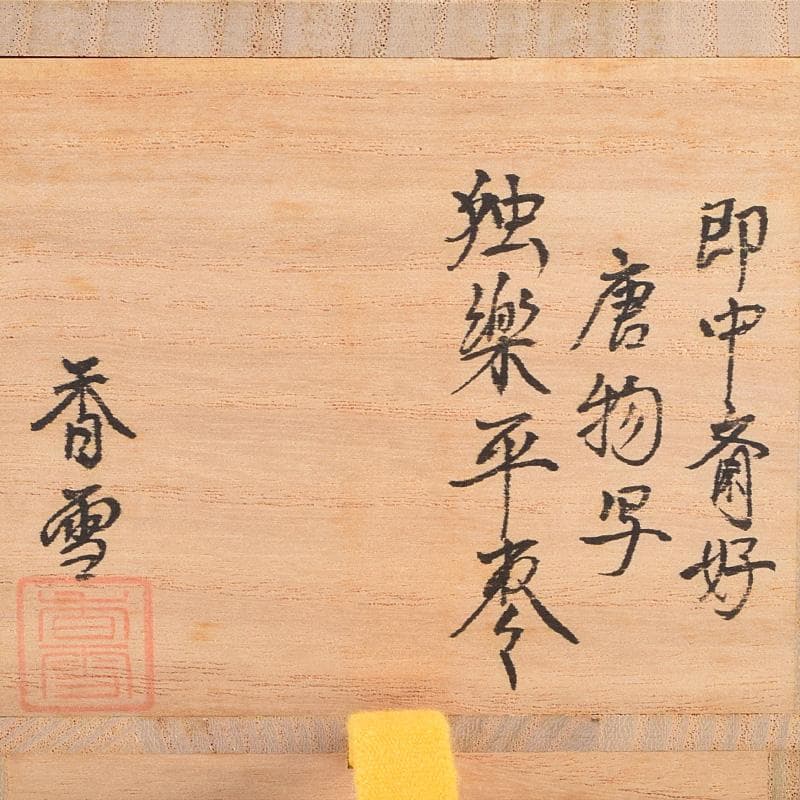 即中斎好
唐物写
独楽平棗
香雪
香雪